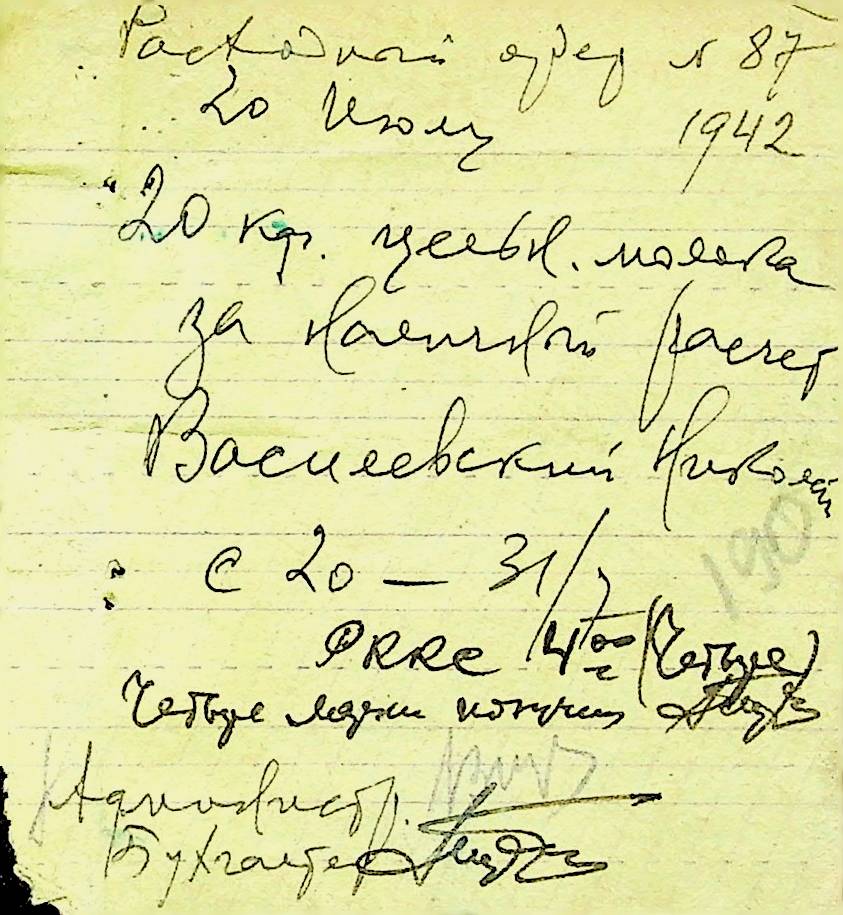 Расходный ордер N 87
20 Июля 1942
20 кгр. цельн. молока
за наличный расчет
Василевский Николай
с 20 — 31/7
РККС 4 00 (Четыре)
Четыре марки получил
Администр.
Бухгалтер
190